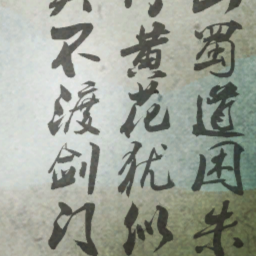 蜀道困朱
黄花犹似
不渡剑门